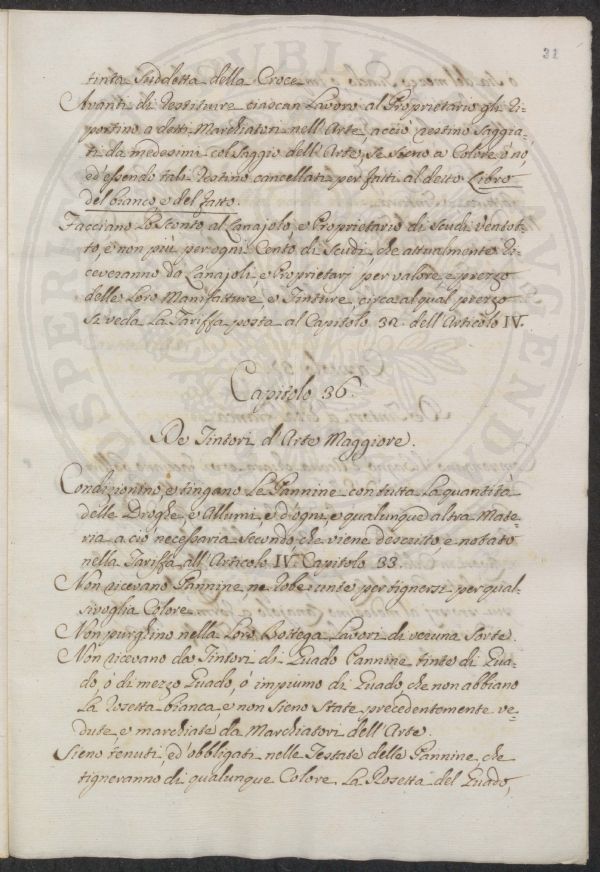 31
tinta Suddetta della Croce.
Avanti di Restituire ciascun Lavoro al Proprietario gli Ri=
portino a detti Marchiatori nell'Arte, acciò restino Saggia=
ti da medesimi col Saggio dell'Arte, se sieno a Colore, ò nò,
ed essendo tali restino cancellati per fatti al detto Libro
del bianco, e del fatto.
Facciano Lo Sconto al Lanajolo, e Proprietario di Scudi Ventot=
to, e non più per ogni Cento di Scudi, che attualmente Ri=
ceveranno da Lanajoli, e Proprietarj per valore, e prezzo
delle Loro Manifatture, e Tinture, circa al qual prezzo
Si veda La Tariffa posta al Capitolo 32. dell'Articolo IV.
Capitolo 36.
De Tintori d'Arte Maggiore.
Condizionino, e tingano Le Pannine con tutta La quantità
delle Droghe, e Allumi, e d'ogni, e qualunque altra Mate=
ria a ciò necessaria Secondo che viene descritto, e notato
nella Tariffa all'Articolo IV. Capitolo 33.
Non ricevano Pannine, ne Robe unte per tignersi per qual=
sivoglia Colore.
Non purghino nella Loro Bottega Lavori di veruna Sorte.
Non ricevano da Tintori di Guado Pannine tinte di Gua=
do, ò di mezzo Guado, ò impiumo di Guado, che non abbiano
La Rosetta bianca, e non Sieno State precedentemente ve=
dute, e marchiate da Marchiatori dell'Arte.
Sieno tenuti, ed obbligati nelle Testate delle Pannine, che
tigneranno di qualunque Colore La Rosetta del Guado,
PROSPERITATI PUBLICAE AUGENDAE